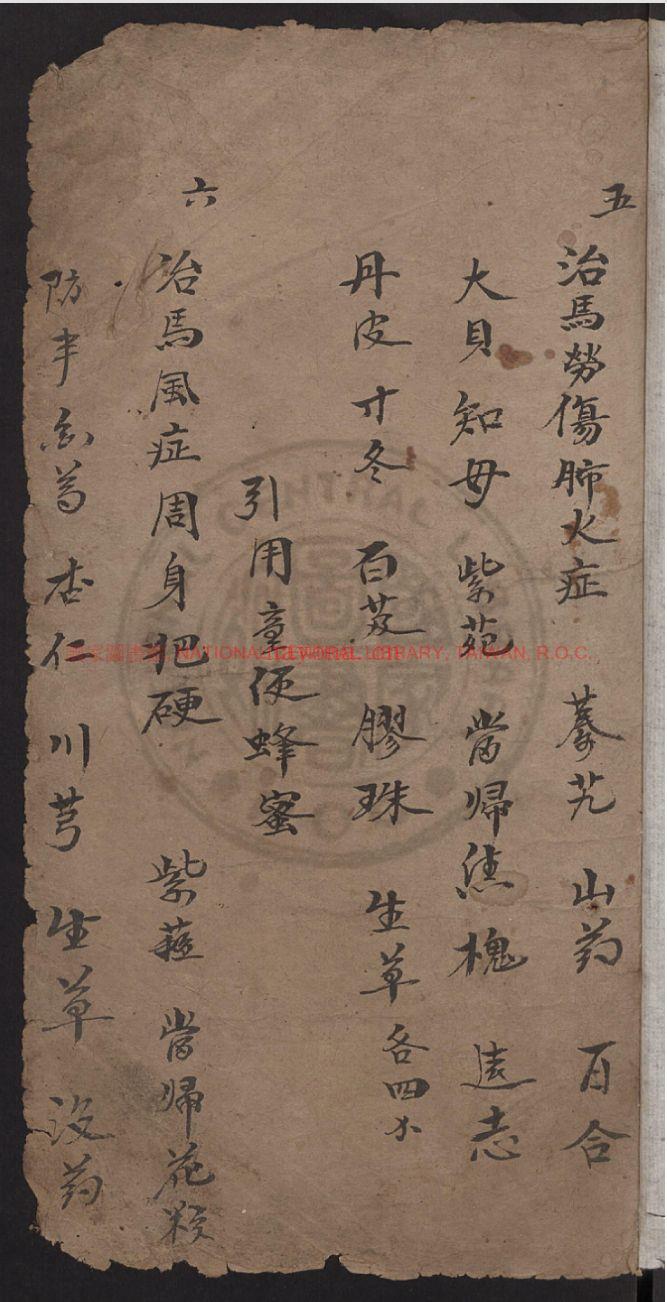 五
治馬勞傷肺火症 蓁艽 山药 百合
大貝 知毋 紫苑 當帰 焦槐 遠志
丹皮 寸冬 百芨 膠珠 生草 各四
引用童便蜂蜜
六
治馬風症周身把硬 紫蘓 當帰 花粉
防丰 葛 杏仁 川芎 生草 没药
LIBRARY, TAIWAN, R.O.C.